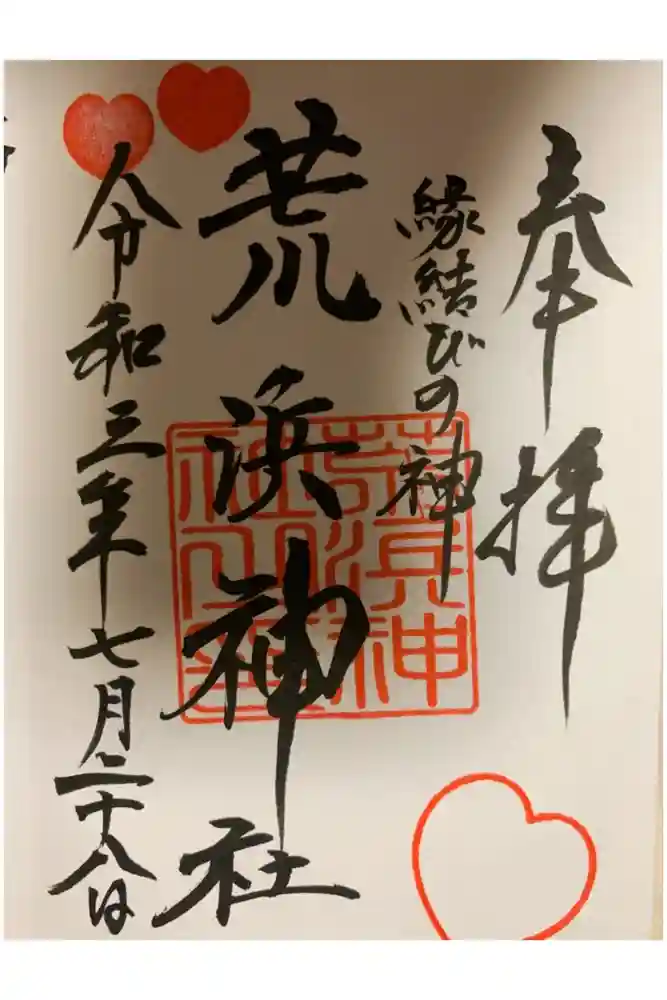 奉拝
縁結びの神
荒浜神社
荒浜神
社之璽
令和三年七月二十八日